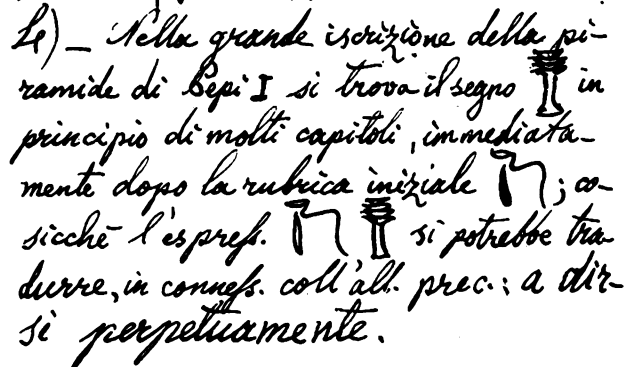 4) _ Nella grande iscrizione della pi-
ramide di Pepi I si trova il segno 𓊽 in
principio di molti capitoli, immediata-
mente dopo la rubrica iniziale 𓆓; co-
sicchè l'espress. 𓆓 𓊽 si potrebbe tra-
durre, in conness. coll'all. prec.: a dir-
si perpetuamente.